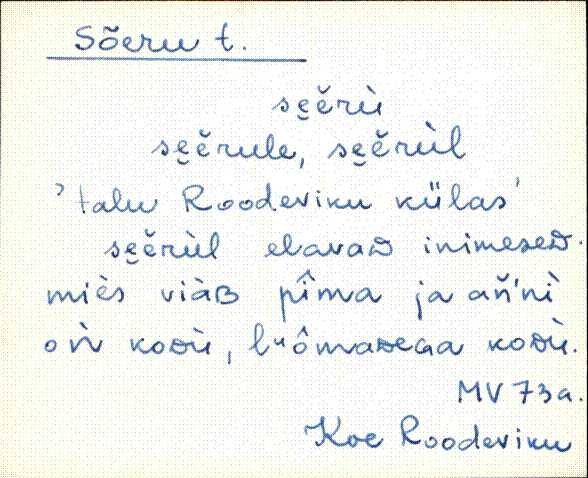 Sõeru t.
se̮ĕ̮rù
se̮ĕ̮rule, se̮ĕ̮rùl
'talu Roodeviku külas'
se̮ĕ̮rùl elavaᴅ inimeseᴅ.
miès viàʙ pîma ja añ'nì
oǹ koᴅù, lᵘômaᴅeɢa koᴅù.
MV 73a.
Koe Roodeviku